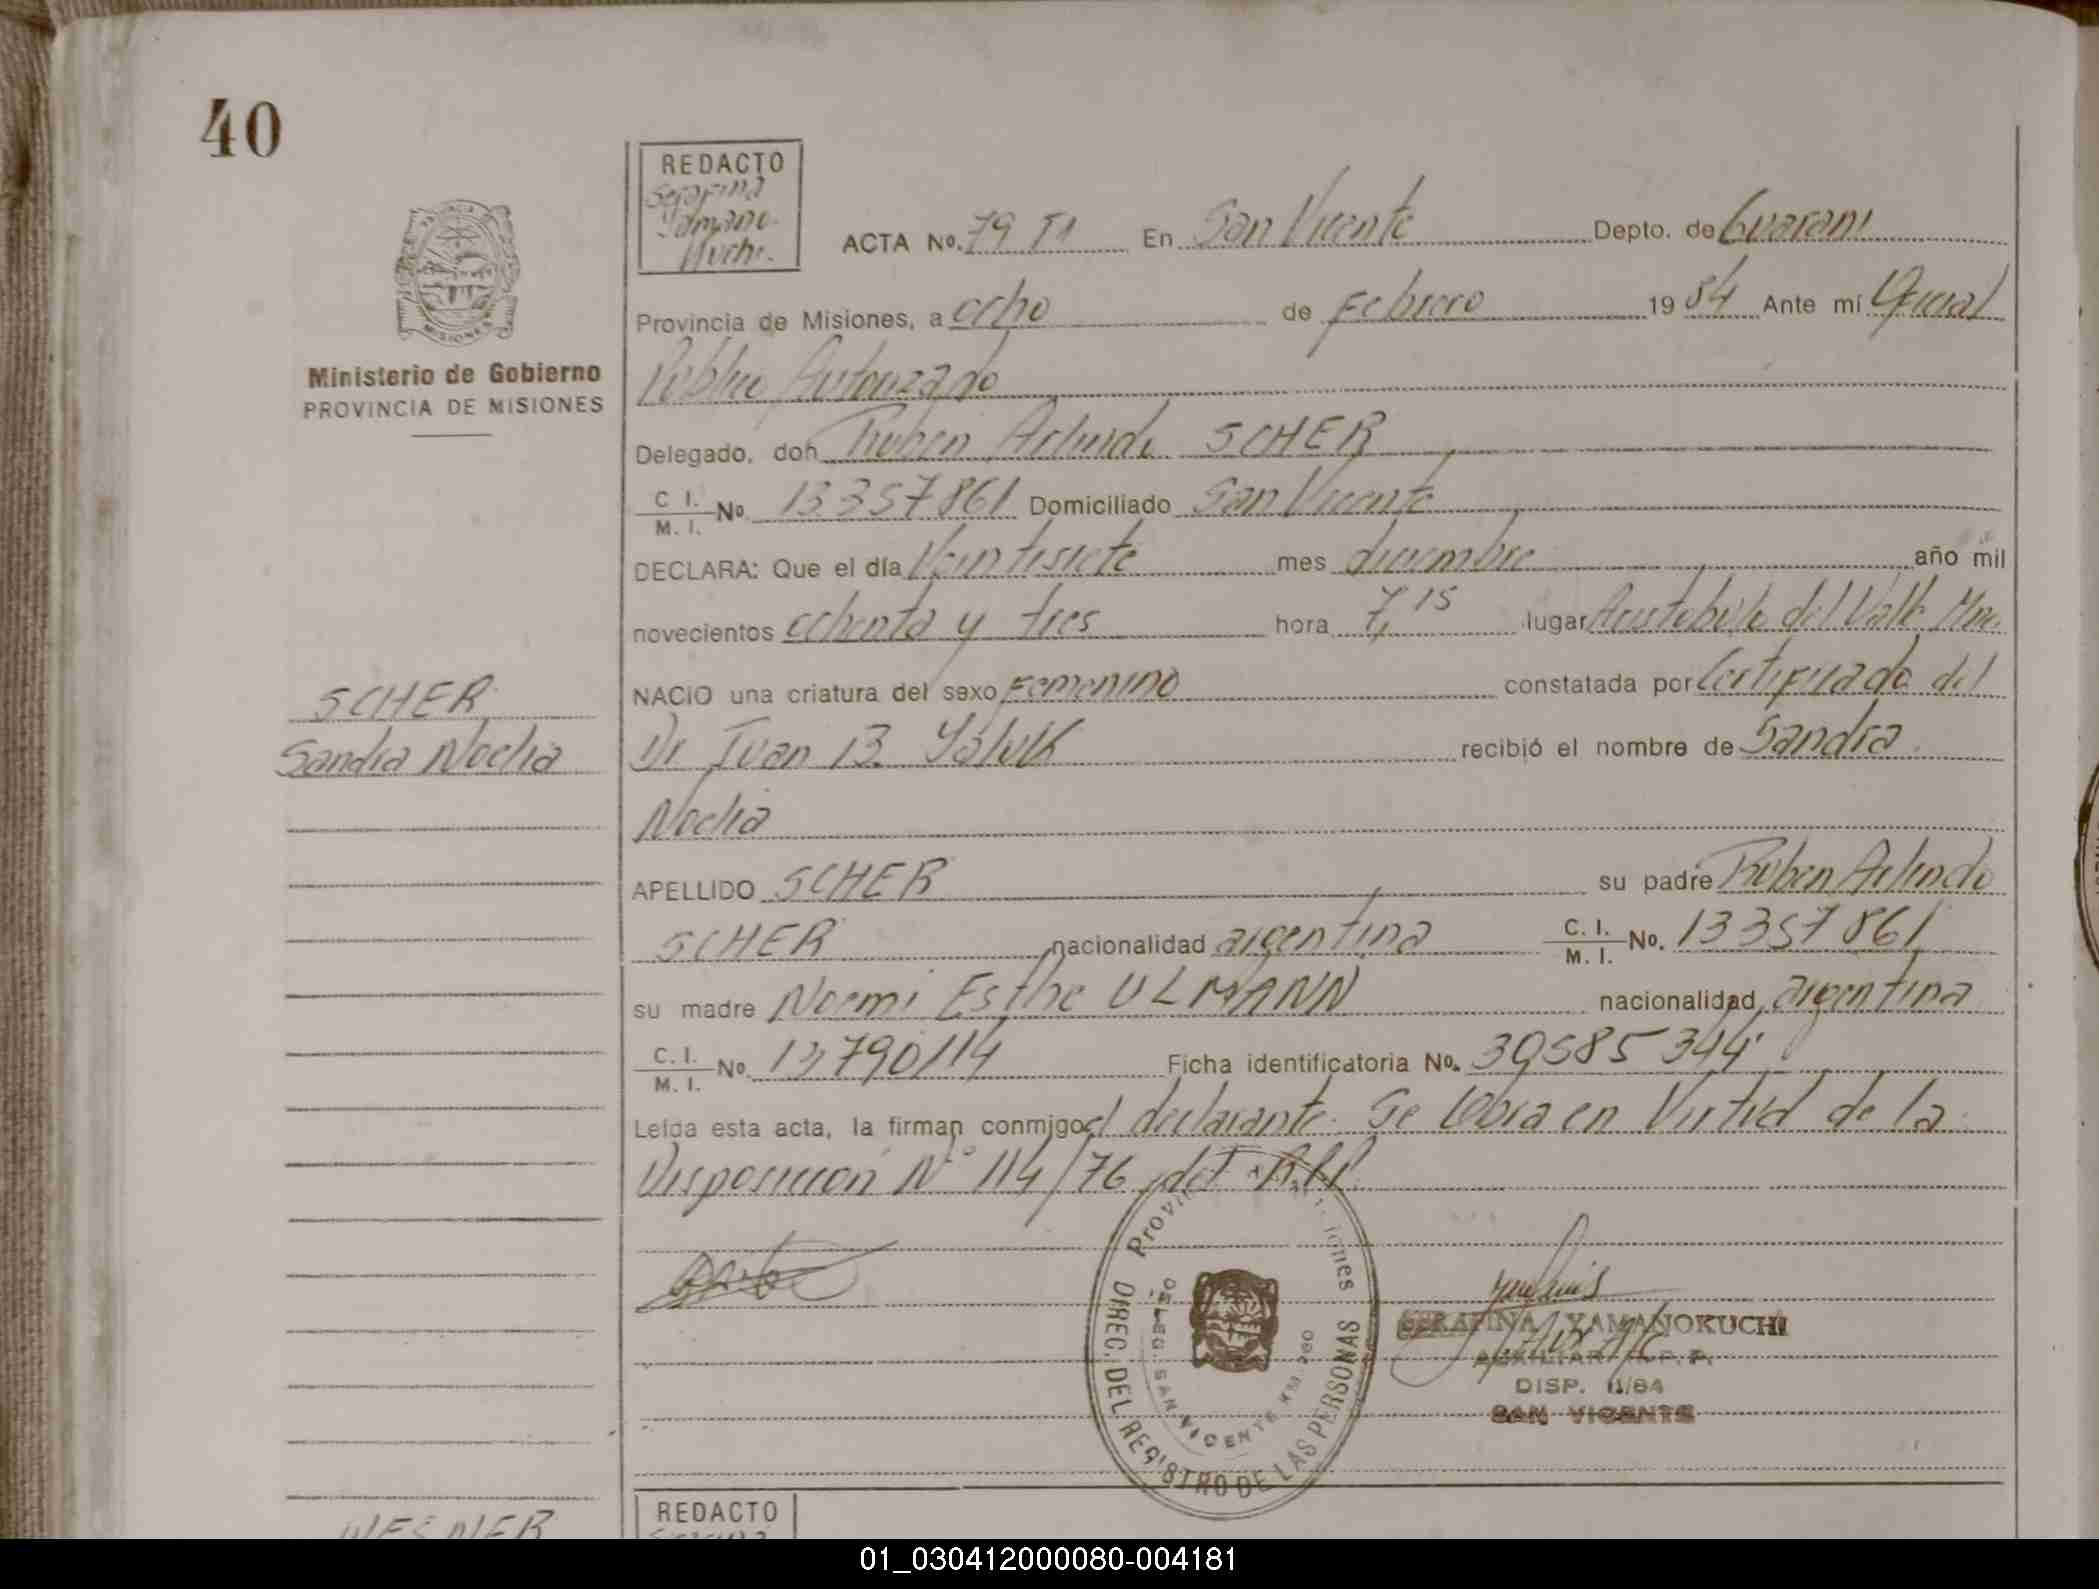 40
REDACTO
Serafina
Yamano-
kuchi.
ACTA No. 79 T1 En San Vicente Depto. de Guarani
Provincia de Misiones, a ocho de Febrero 19 84 Ante mí Oficial
Público Autorizado
Ministerio de Gobierno
PROVINCIA DE MISIONES
Delegado, don Ruben Arlindo SCHER
C. I. / M. I. No. 13357861 Domiciliado San Vicente
DECLARA: Que el día Veintisiete mes diciembre año mil
novecientos ochenta y tres hora 7,15 lugar Aristobulo del Valle Mnes.
SCHER
Sandra Noelia
NACIO una criatura del sexo Femenino constatada por Certificado del
Dr Juan B. recibió el nombre de Sandra
Noelia
APELLIDO SCHER su padre Ruben Arlindo
SCHER nacionalidad argentina C. I. / M. I. No. 13357861
su madre Noemi Esthe ULMANN nacionalidad argentina
C. I. / M. I. No. 13790114 Ficha identificatoria No. 39585344
Leída esta acta, la firman conmigo el declarante. Se Labra en Virtud de la
Disposición Nº 114/76 del R.P.P.
Provincia de Misiones
DIREC. DEL REGISTRO DE LAS PERSONAS
DELEG. SAN VICENTE KM. 260
SERAFINA YAMANOKUCHI
AUXILIAR R. P. P.
DISP. 11/84
SAN VICENTE
WESNER
REDACTO
Serafina
01_030412000080-004181